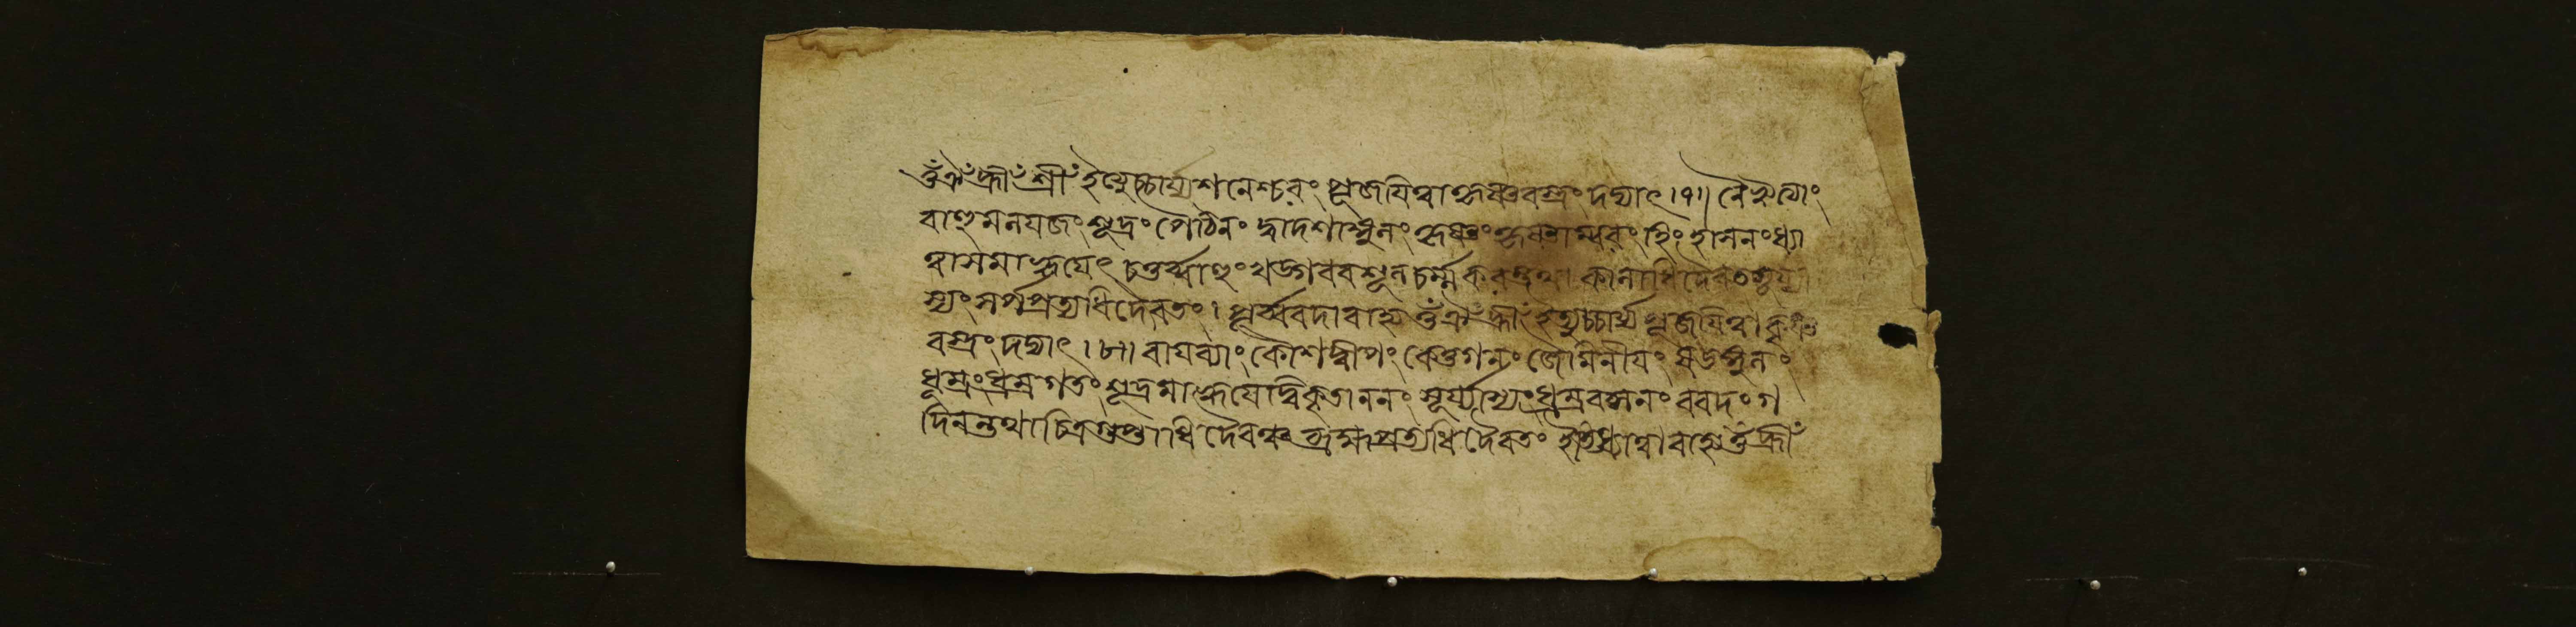 ওঁ ঐঁ হ্রীঁ শ্রীঁ ইত্যুচ্চার্য্য শনৈশ্চরং পূজযিত্বা কৃষ্ণবস্ত্রং দদ্যাৎ।৭॥ নৈঋত্যাং
শূদ্রং পৈঠিনং দ্বাদশাঙ্গুলং কৃষ্ণং সিংহাসনং ধ্যা
ত্বাসমাহ্বযেৎ চতুর্ব্বাহুং খড্গবরশূলচর্ম্মকরন্তথা কালাধিদৈবতং সূর্য্যা
স্যং সর্পপ্রত্যধিদৈবতং। পূর্ব্ববদাবাহ্য ওঁ ঐঁ হ্রীঁ ইত্যুচ্চার্য্য পূজযিত্বা কৃষ্ণ
বস্ত্রং দদ্যাৎ।৮॥ বাযব্যাং কৌশদ্বীপং কেতুগনং জৈমিনীযং ষডঙ্গুলং
ধূম্রং ধূম্রগতং শূদ্রমাহ্বযেদ্বিকৃতাননং সূর্য্যাস্যং ধূম্রবসনং বরদং গ
দিনন্তথা চিত্রগুপ্তাধিদৈবঞ্চ ব্রহ্মপ্রত্যধিদৈবতং ইতি ধ্যাত্বাবাহ্য ওঁ হ্রীঁ